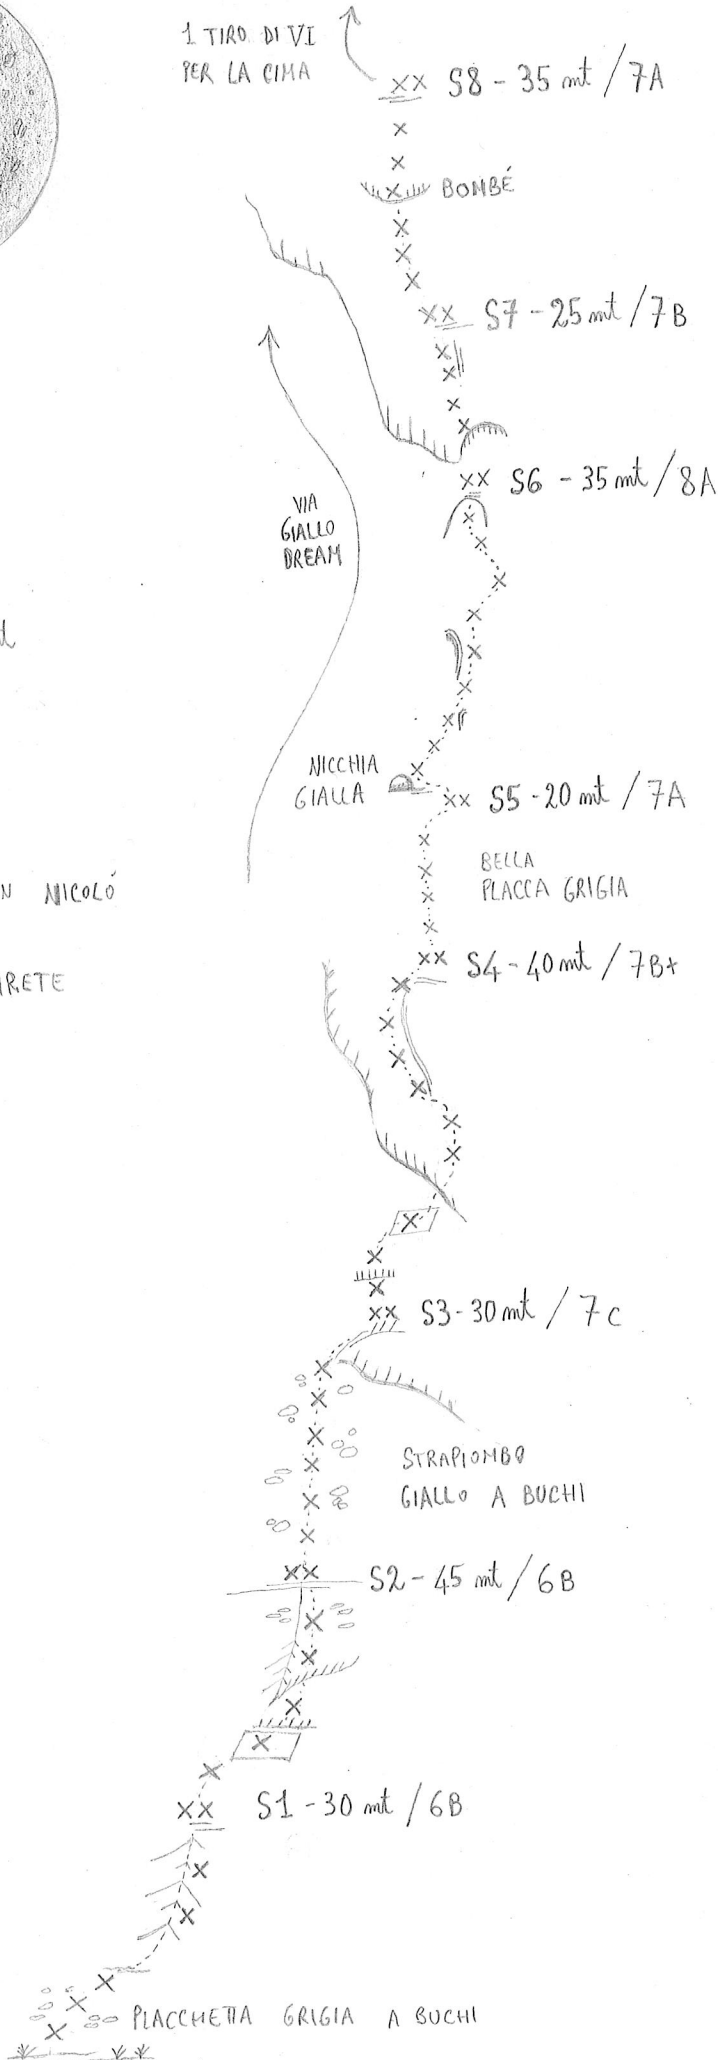 1 TIRO DI VI
PER LA CIMA
S8 - 35 mt / 7A
BOMBÉ
S7 - 25 mt / 7B
S6 - 35 mt / 8A
VIA
GIALLO
DREAM
NICCHIA
GIALLA
S5 - 20 mt / 7A
BELLA
PLACCA GRIGIA
NICOLÓ
S4 - 40 mt / 7B+
S3 - 30 mt / 7C
STRAPIOMBO
GIALLO A BUCHI
S2 - 45 mt / 6B
S1 - 30 mt / 6B
PLACCHETTA GRIGIA A BUCHI